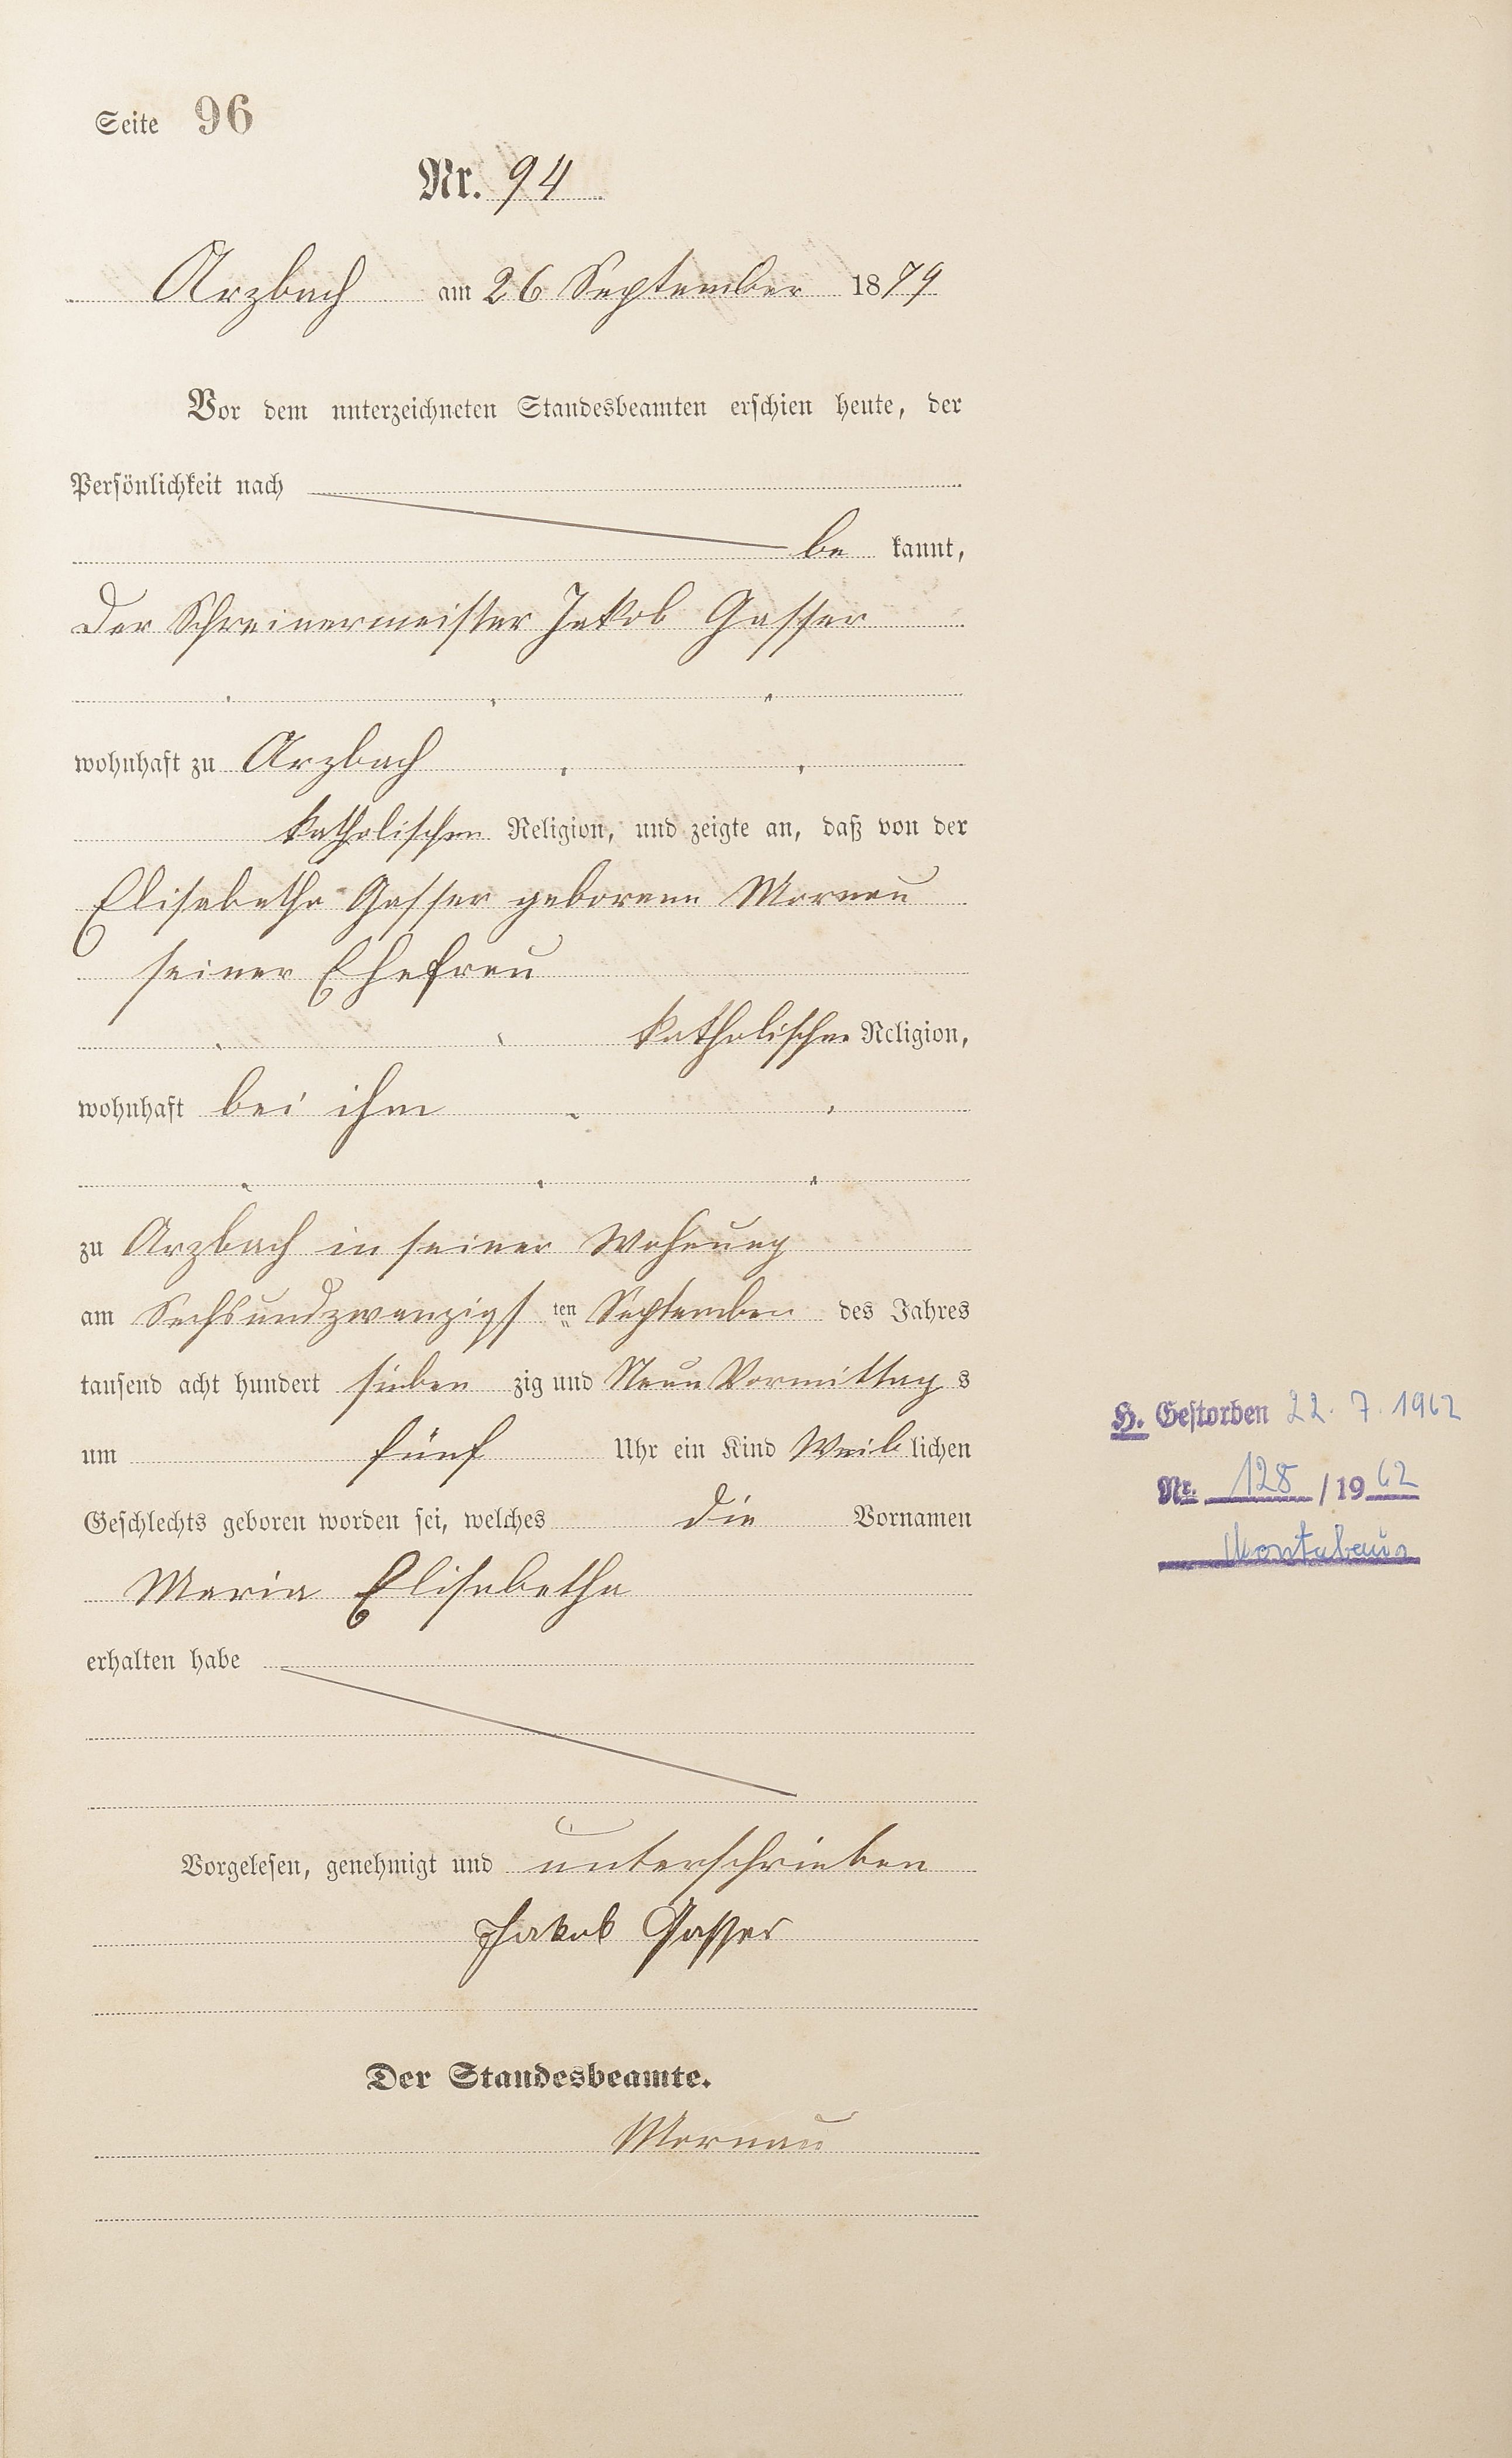 Seite 96
Nr. 94
Arzbach am 26 September 1879
Vor dem unterzeichneten Standesbeamten erschien heute, der
Persönlichkeit nach
be kannt,
Der Schreinermeister Jakob Gasser
wohnhaft zu Arzbach
katholischen Religion, und zeigte an, daß von der
Elisabetha Gasser geborene Mornau
seiner Ehefrau
katholischer Religion,
wohnhaft bei ihm
zu Arzbach in seiner Wohnung
am Sechsundzwanzigs ten September des Jahres
tausend acht hundert sieben zig und Neun Vormittag s
um fünf Uhr ein Kind Weib lichen
Geschlechts geboren worden sei, welches die Vornamen
Maria Elisabetha
erhalten habe
H. Gestorben 22. 7. 1962
Nr. 128 / 1962
Montabaur
Vorgelesen, genehmigt und unterschrieben
Jakob Gasser
Der Standesbeamte.
Mornau